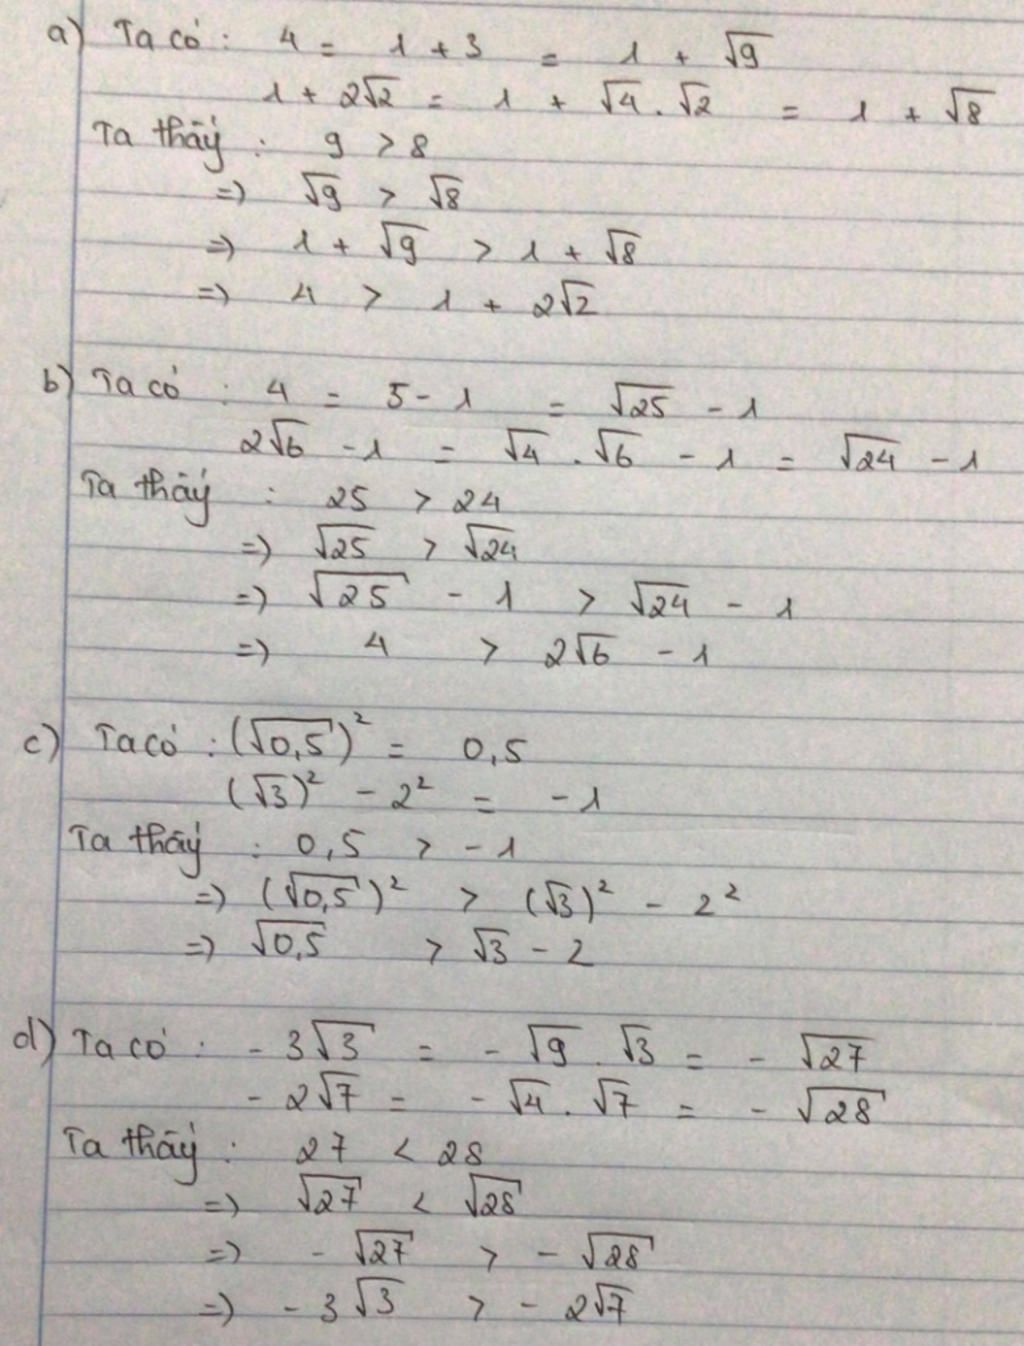 a) Ta có : 4 = 1 + 3 = 1 + √9
1 + 2√2 = 1 + √4 . √2 = 1 + √8
Ta thấy : 9 > 8
=> √9 > √8
=> 1 + √9 > 1 + √8
=> 4 > 1 + 2√2
b) Ta có : 4 = 5 - 1 = √25 - 1
2√6 - 1 = √4 . √6 - 1 = √24 - 1
Ta thấy : 25 > 24
=> √25 > √24
=> √25 - 1 > √24 - 1
=> 4 > 2√6 - 1
c) Ta có : (√0,5)² = 0,5
(√3)² - 2² = -1
Ta thấy : 0,5 > -1
=> (√0,5)² > (√3)² - 2²
=> √0,5 > √3 - 2
d) Ta có : - 3√3 = - √9 . √3 = - √27
- 2√7 = - √4 . √7 = - √28
Ta thấy : 27 < 28
=> √27 < √28
=> - √27 > - √28
=> - 3√3 > - 2√7